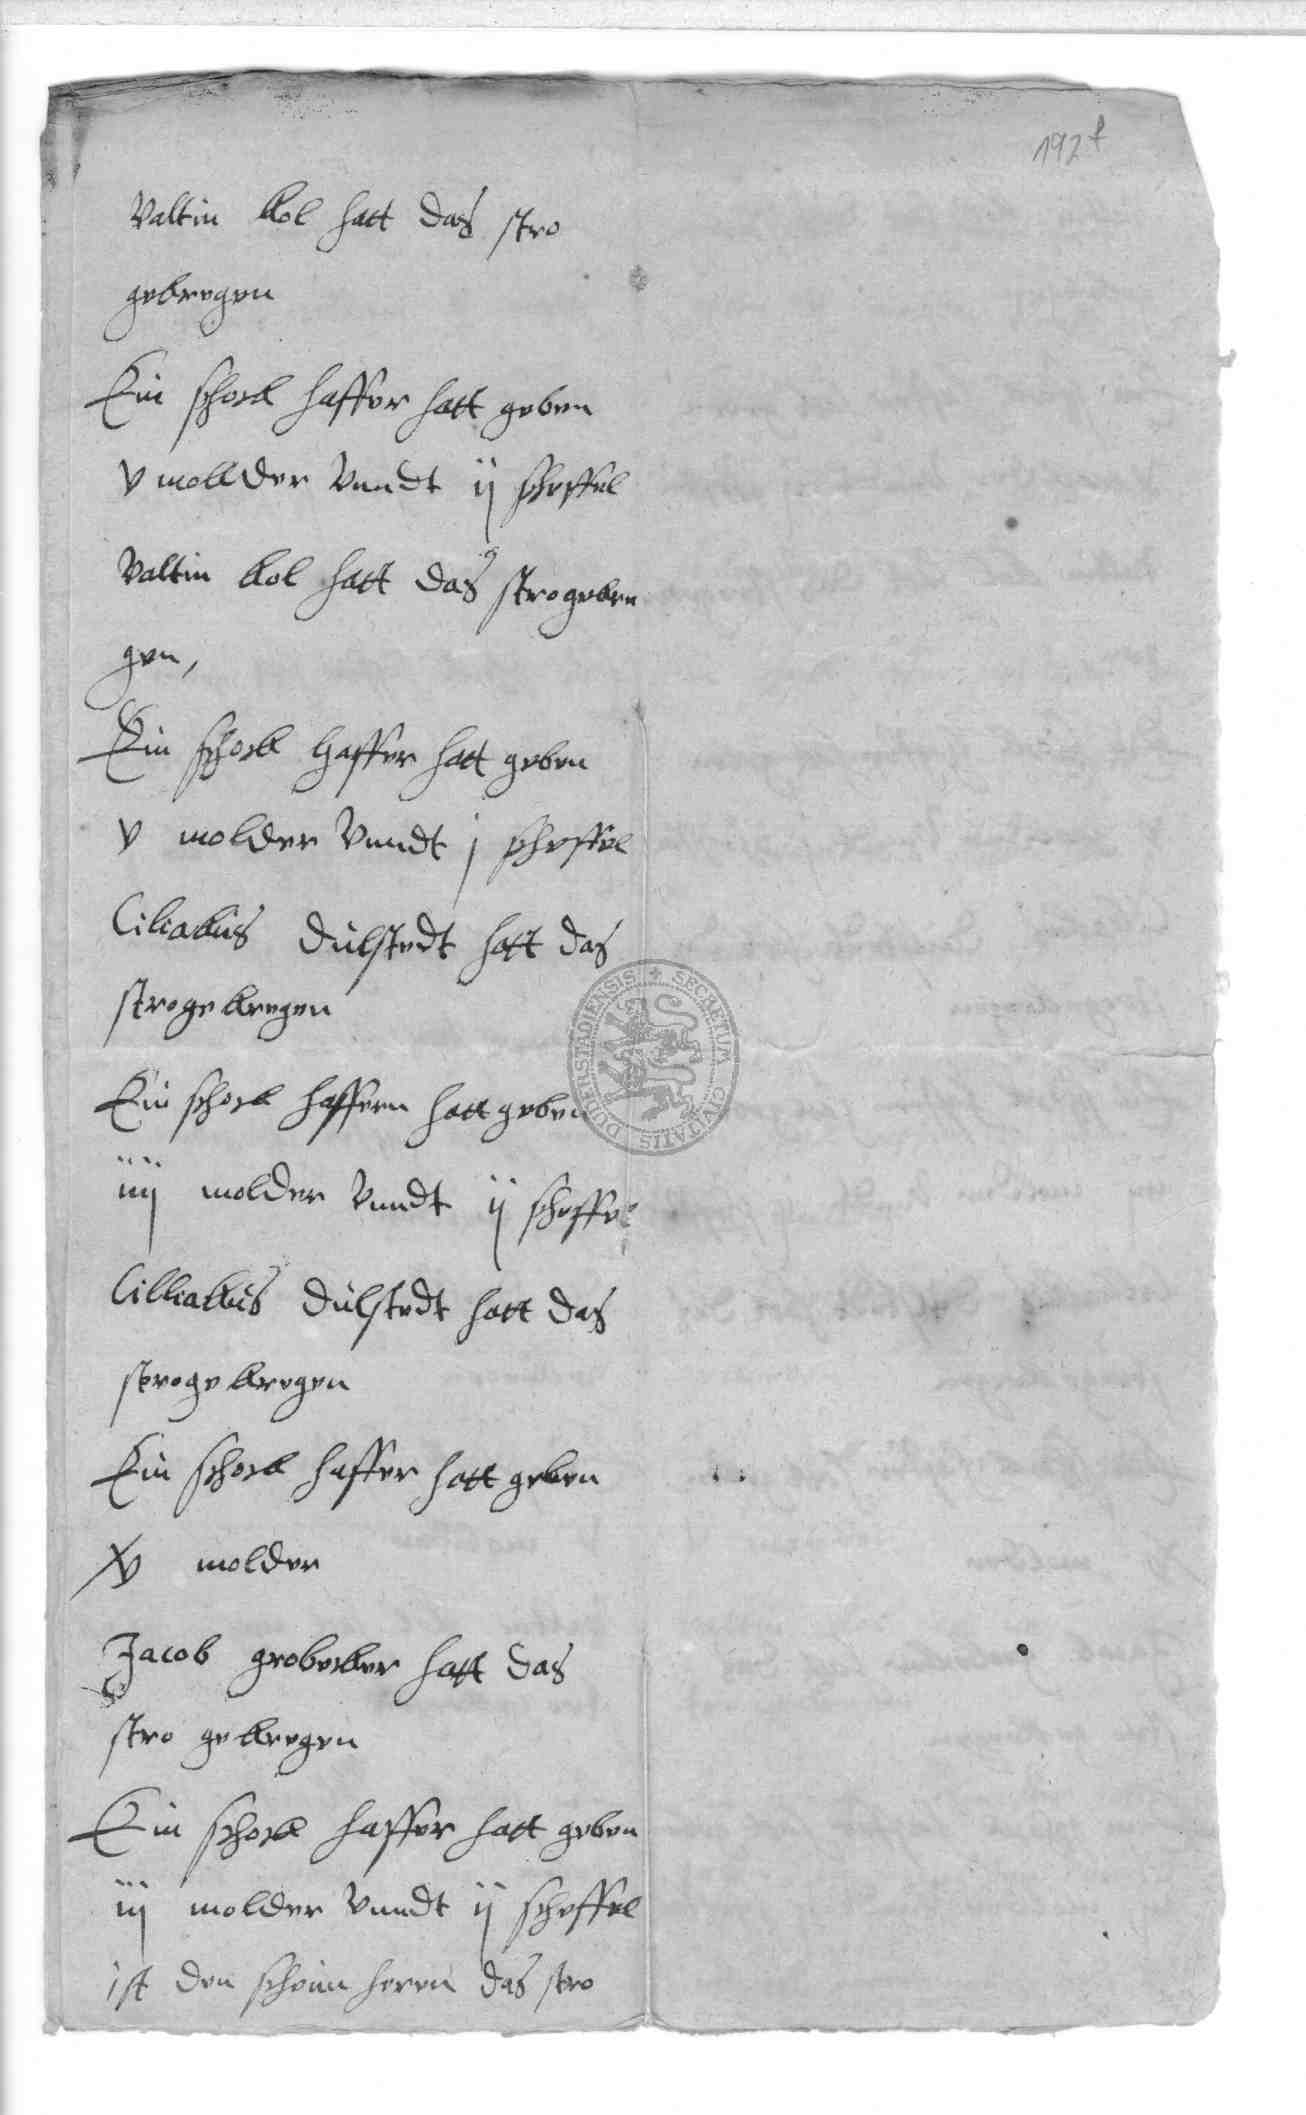 192f
Valtin kol hatt das stro
gekregen
Ein schock haffer hatt geben
v mollder vnndt ij scheffel
Valtin kol hatt das strogekre
gen,
Ein schock haffer hatt geben
v molder vnndt j scheffel
Ciliakus dülstedt hatt das
strogekregen
Ein schock haffern hatt geben
iiij molder vnndt ij scheffel
Cilliakus dülstedt hatt das
strogekregen
Ein schock haffer hatt geben
v molder
Jacob grobecker hatt das
stro gekregen
Ein schock haffer hatt geben
iij molder vnndt ij scheffel
ist den herrn das stro
SECRETUM CIVITATIS DUDERSTADIENSIS